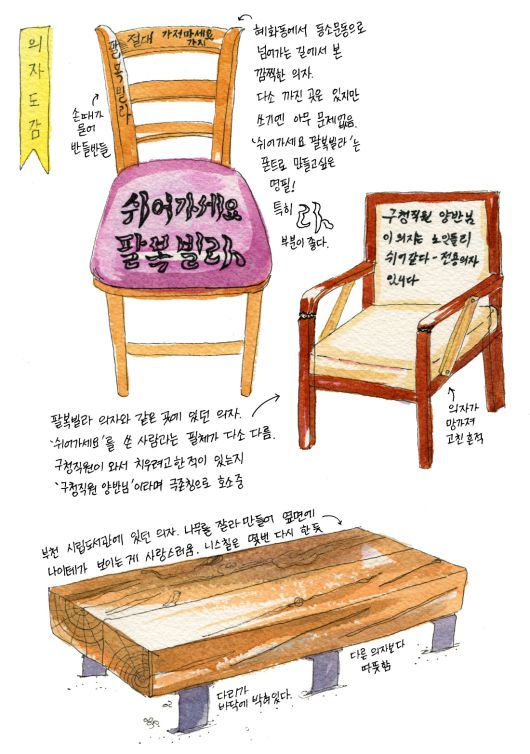 의자도감
팔복빌라
절대 가져마세요
가지
손때가
묻어
반들반들
쉬어가세요
팔복빌라
혜화동에서 동소문동으로
넘어가는 길에서 본
깜찍한 의자.
다소 까진 곳은 있지만
쓰기엔 아무 문제없음.
'쉬어가세요 팔복빌라'는
폰트로 만들고싶은
명필!
특히 라
부분이 좋다.
구청직원 양반님
이 의자는 노인들리
쉬기간다-전용의자
입니다
의자가
망가져
고친 흔적
팔복빌라 의자와 같은 곳에 있던 의자.
'쉬어가세요'를 쓴 사람과는 필체가 다소 다름.
구청직원이 와서 치우려고한 적이 있는지
'구청직원 양반님'이라며 극존칭으로 호소중
부천 시립도서관에 있던 의자. 나무를 잘라 만들어 옆면에
나이테가 보이는게 사랑스러움. 니스칠은 몇번 다시 한듯
다른 의자보다
따뜻함
다리가
바닥에 박혀있다.